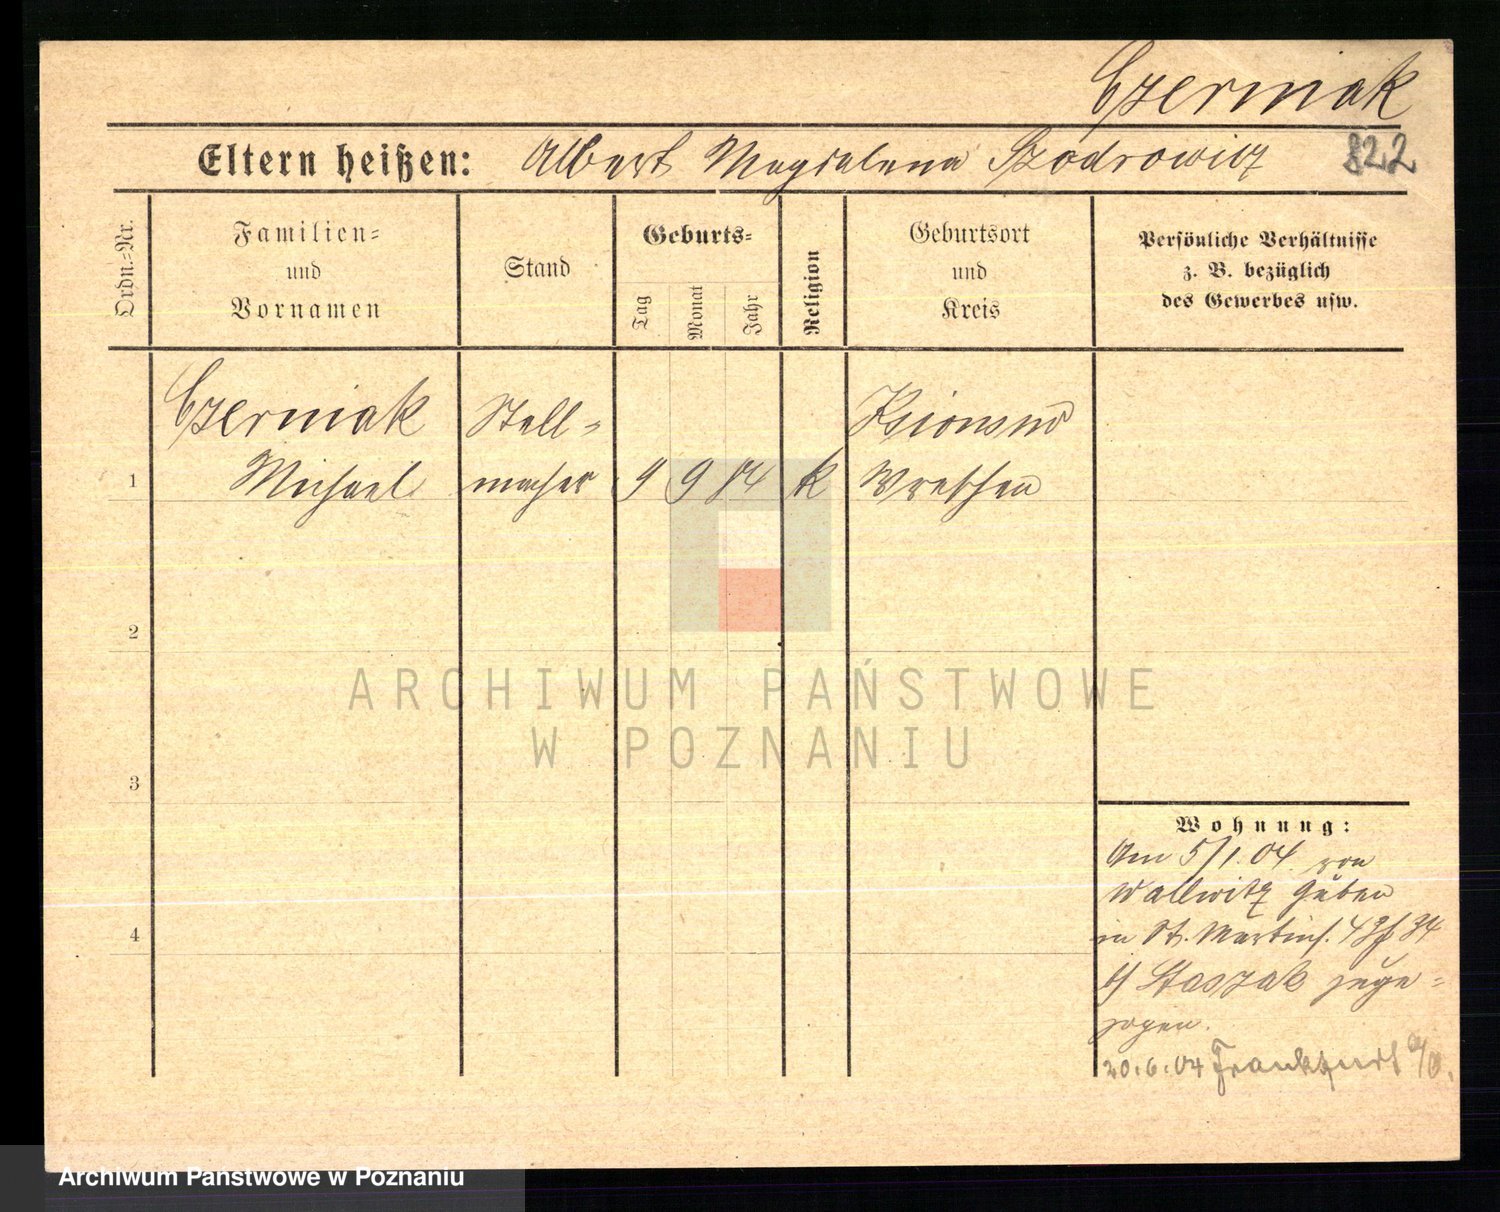 Czerniak
822
Eltern heißen: Albert Magdalena Szodrowicz
Ordn.-Nr.
Familien-
und
Vornamen
Stand
Geburts-
Tag
Monat
Jahr
Religion
Geburtsort
und
Kreis
Persönliche Verhältnisse
z. B. bezüglich
des Gewerbes usw.
Czerniak Stell-
1 Michael macher 9 9 84 k Wreschen
2
3
4
ARCHIWUM PAŃSTWOWE
W POZNANIU
Wohnung:
Am 5/1.04. von
Wallwitz Guben
in St. Martinst.
Staszak zuge-
zogen.
20.6.04 Frankfurt a/O.
Archiwum Państwowe w Poznaniu